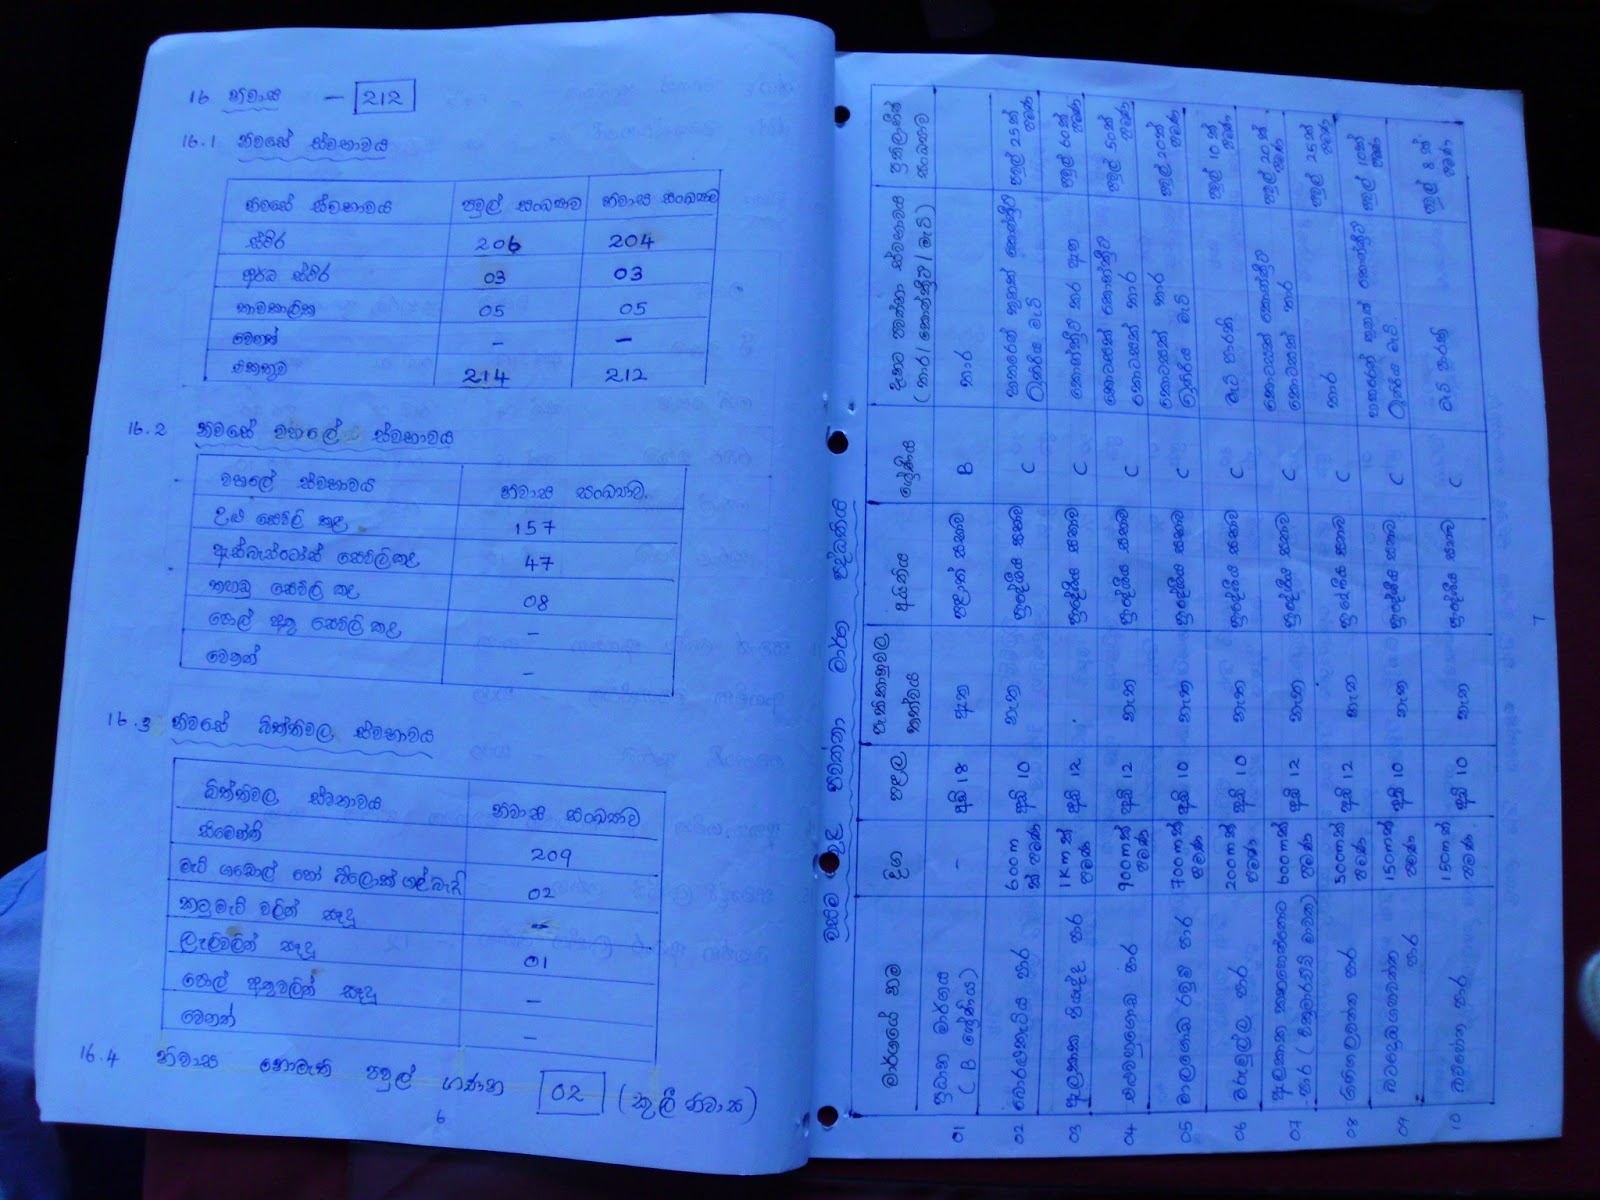 16 නිවාස — 212
16.1 නිවසේ ස්වභාවය
නිවසේ ස්වභාවය පවුල් සංඛ්‍යාව නිවාස සංඛ්‍යාව
ස්ථිර 206 204
අර්ධ ස්ථිර 03 03
තාවකාලික 05 05
වෙනත් - -
එකතුව 214 212
16.2 නිවසේ වහලේ ස්වභාවය
වහලේ ස්වභාවය නිවාස සංඛ්‍යාව
උළු සෙවිලි කළ 157
ඇස්බැස්ටෝස් සෙවිලි කළ 47
තහඩු සෙවිලි කළ 08
පොල් අතු සෙවිලි කළ -
වෙනත් -
16.3 නිවසේ බිත්තිවල ස්වභාවය
බිත්තිවල ස්වභාවය නිවාස සංඛ්‍යාව
සිමෙන්ති 209
මැටි ගඩොල් හෝ බ්ලොක් ගල් බැඳි 02
කටුමැටි වලින් සෑදූ -
ලෑලිවලින් සෑදූ 01
පොල් අතුවලින් සෑදූ -
වෙනත් -
16.4 නිවාස නොමැති පවුල් ගණන 02 (කුලී නිවාස)
6
වසම තුළ පවත්නා මාර්ග පද්ධතිය
මාර්ගයේ නම දිග පළල පැතිකානුවල තත්වය අයිතිය ශ්‍රේණිය දැනට පවත්නා ස්වභාවය (තාර/කොන්ක්‍රීට්/මැටි) ප්‍රතිලාභීන් සංඛ්‍යාව
01 ප්‍රධාන මාර්ගය (B ශ්‍රේණිය) - අඩි 18 ඇත පළාත් සභාව B තාර
02 පාර 600m ක් පමණ අඩි 10 නැත ප්‍රාදේශීය සභාව C පවුල් 25ක් පමණ
03 පාර 1Kmක් පමණ අඩි 12 ප්‍රාදේශීය සභාව C කොන්ක්‍රීට් තාර ඇත පවුල් 60ක් පමණ
04 පාර 900mක් පමණ අඩි 12 නැත ප්‍රාදේශීය සභාව C කොටසක් කොන්ක්‍රීට් කොටසක් තාර පවුල් 50ක් පමණ
05 පාර 700mක් පමණ අඩි 10 නැත ප්‍රාදේශීය සභාව C කොටසක් තාර ඉතිරිය මැටි පවුල් 20ක් පමණ
06 පාර 200mක් පමණ අඩි 10 නැත ප්‍රාදේශීය සභාව C මැටි පාරකි පවුල් 10ක් පමණ
07 පාර 600mක් පමණ අඩි 12 නැත ප්‍රාදේශීය සභාව C කොටසක් කොන්ක්‍රීට් කොටසක් තාර පවුල් 20ක් පමණ
08 පාර 500mක් පමණ අඩි 12 නැත ප්‍රාදේශීය සභාව C තාර පවුල් 25ක් පමණ
09 පාර 150mක් පමණ අඩි 10 නැත ප්‍රාදේශීය සභාව C පවුල් 10ක් පමණ
10 පාර 150mක් පමණ අඩි 10 නැත ප්‍රාදේශීය සභාව C මැටි පාරකි පවුල් 8ක් පමණ
7